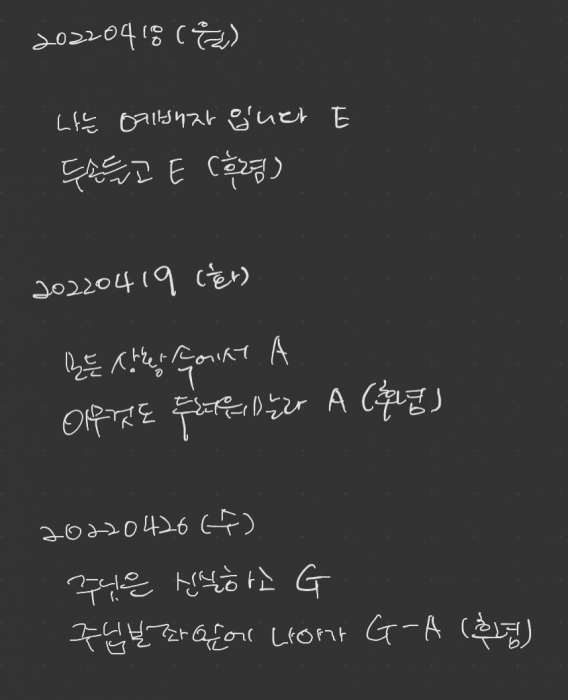 20220418 (월)
나는 예배자 입니다 E
두손들고 E (후렴)
20220419 (화)
모든 상황 속에서 A
아무것도 두려워말라 A (후렴)
20220420 (수)
주님은 신실하고 G
주님 보좌앞에 나아가 G-A (후렴)